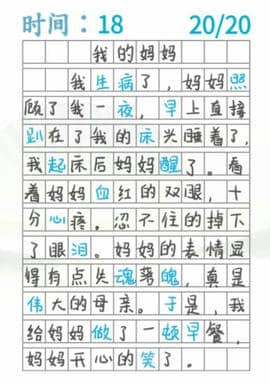 时间：18 20/20
我的妈妈
我生病了，妈妈照
顾了我一夜，早上直接
趴在了我的床头睡着了，
我起床后妈妈醒了。看
着妈妈血红的双眼，十
分心疼。忍不住的掉下
了眼泪。妈妈的表情显
得有点失魂落魄，真是
伟大的母亲。于是，我
给妈妈做了一顿早餐，
妈妈开心的笑了。